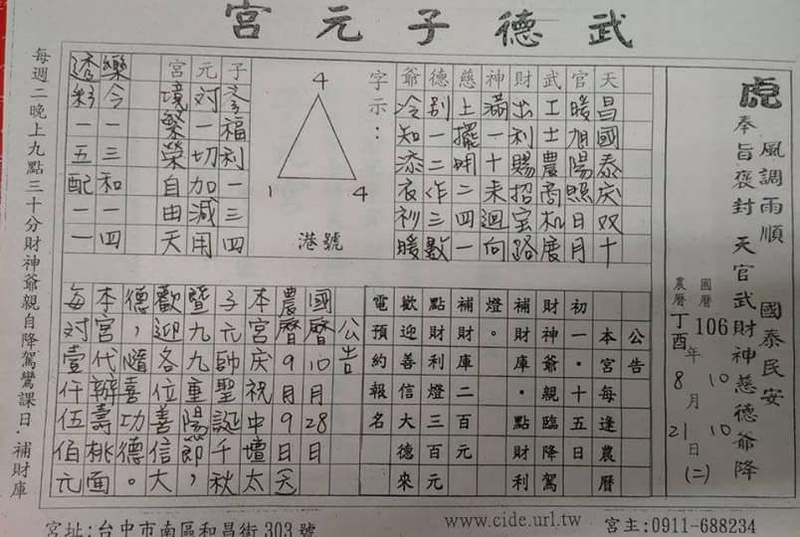 武德子元宮
虎
風調雨順 國泰民安
奉旨褒封 天官武財神慈德爺降
國曆 106年 10月 10日(二)
農曆 丁酉 8 21
天昌國泰庆双十
官暖旭陽照日月
武工士農商机度
財出利賜招宝路
神滿一十来迴向
慈土擺明二四一
德别一二作三數
爺冷知添衣衫暖
字示：
4
1 4
港號
子孝福利一三四
元对一切加減用
宮境繁榮自由天
樂今一三和一四
透彩一五配一一
公告
本宮每逢農曆
初一‧十五日
財神爺‧親臨駕
補財庫‧點財利
燈。
補財庫二百元
點財利燈三百元
歡迎善信大德來
電預約報名
公告
國曆10月28日
農曆9月9日
本宮庆祝中壇太
子元帥聖誕千秋
暨九九重陽節，
歡迎各位善信大
德，隨喜功德。
本宮代辦壽桃面
每对壹仟伍佰元
每週二晚上九點三十分財神爺親自降駕鸞課日‧補財庫
宮址:台中市南區和昌街303號 www.cide.url.tw 宮主:0911-688234